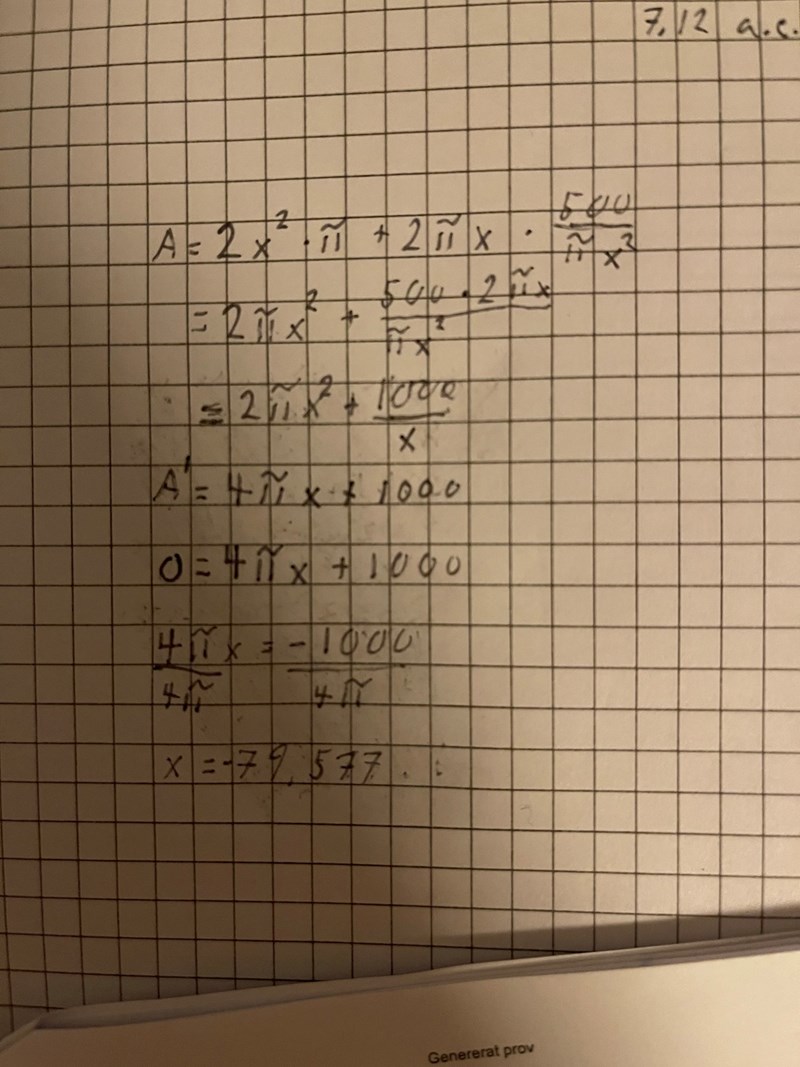 7.12 a.c.
A = 2x² · π + 2πx · 500/πx²
= 2πx² + 500 · 2πx/πx²
= 2πx² + 1000/x
A' = 4πx + 1000
0 = 4πx + 1000
4πx/4π = -1000/4π
x = -79,577...
Genererat prov